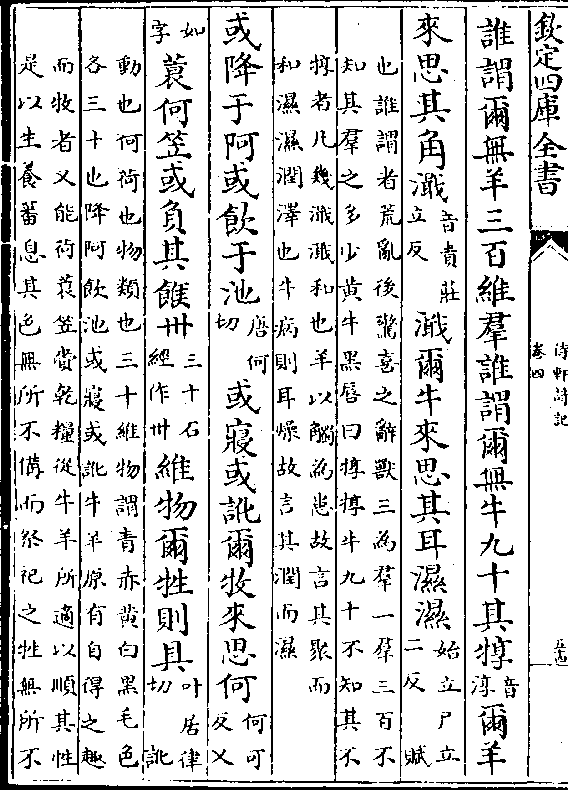 欽定四庫全書
待軒詩記
卷四
誰謂爾無羊三百維羣誰謂爾無牛九十其犉音淳爾羊
來思其角濈音責莊立反濈爾牛來思其耳濕濕始立尸立二反賦
也誰謂者荒亂後驚喜之辭獸三為羣一羣三百不
知其羣之多少黄牛黑唇曰犉犉牛九十不知其不
犉者凡幾濈濈和也羊以觸為患故言其聚而
和濕濕潤澤也牛病則耳燥故言其潤而濕
或降于阿或飲于池唐何切或寢或訛爾牧來思何何可反又
如字蓑何笠或負其餱卅三十石經作卅維物爾牲則具叶居律切訛
動也何荷也物類也三十維物謂青赤黄白黑毛色
各三十也降阿飲池或寢或訛牛羊原有自得之趣
而牧者又能荷蓑笠齎乾糧從牛羊所適以順其性
是以生養蕃息其色無所不備而祭祀之牲無所不